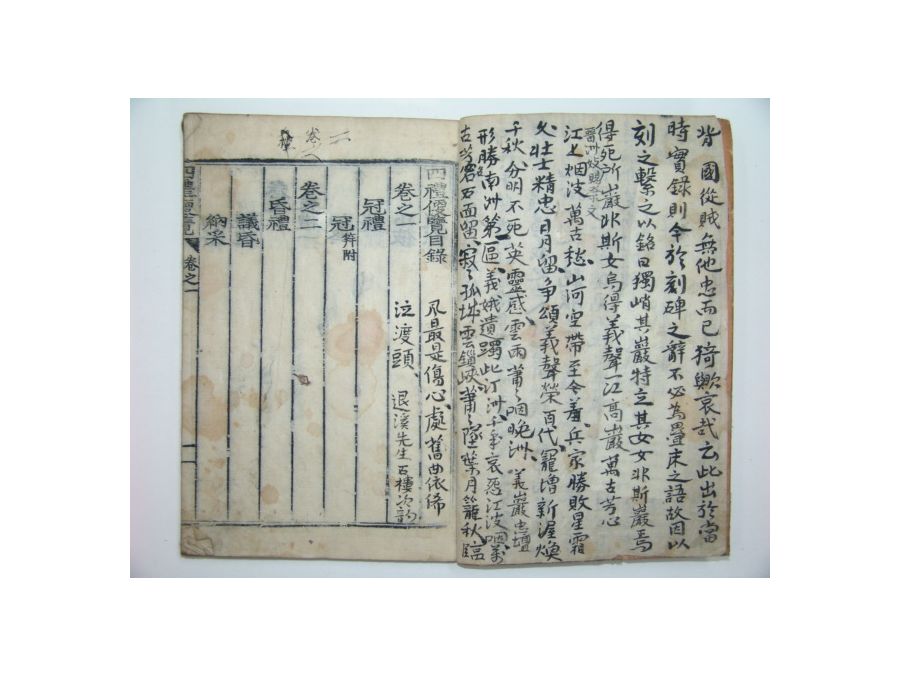 背國從賊無他忠而已猗歟哀哉云此出於當
時實錄則今於刻碑之辭不必爲疊床之語故因以
刻之繫之以銘曰獨峭其巖特立其女女非斯巖焉
得死所巖非斯女烏得義聲一江高巖萬古芳心
江上烟波萬古愁山河空帶至今羞兵家勝敗星霜
久壯士精忠日月留爭頌義聲榮百代寵增新渥煥
千秋分明不死英靈感雲雨蕭々咽晩洲 義巖忠壇
形勝南洲第一區義娥遺躅此汀洲千年哀怨江波咽萬
古芳名石面留寂々孤城雲鎖峽蕭々墜葉月籠秋臨
四禮便覽目錄
風最是傷心處舊曲依俙
卷之一
泣渡頭 退溪先生石樓次韵
冠禮
冠 笄附
卷之二
昏禮
議昏
納采
四禮便覽 卷之一